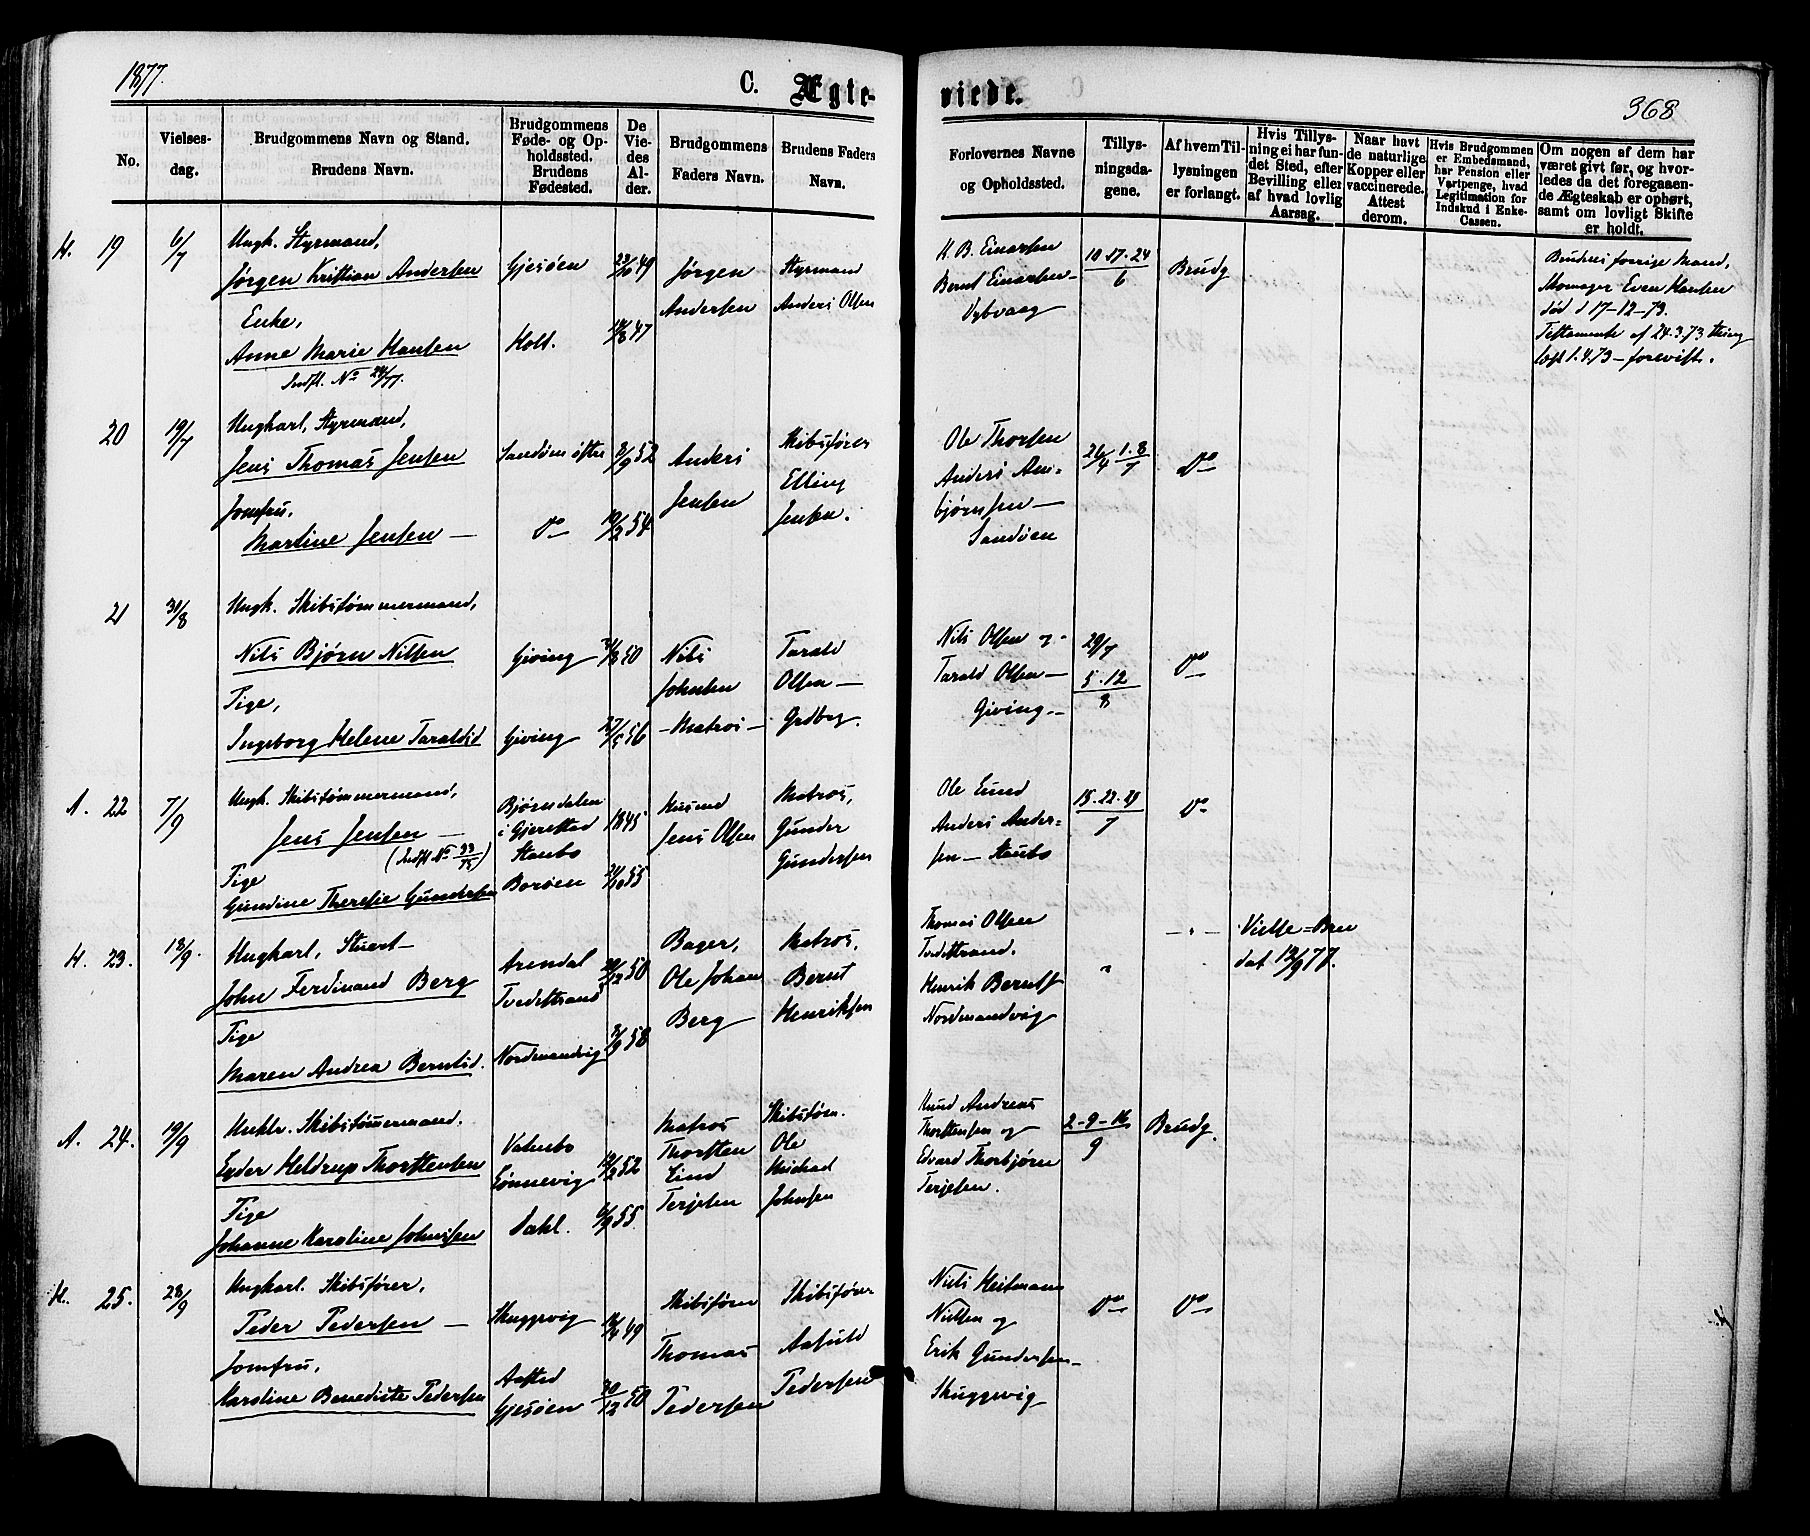 1877.
C. Ægte-
viede.
368
No.
Vielses-
dag.
Brudgommens Navn og Stand.
Brudens Navn.
Brudgommens
Føde- og Op-
holdssted.
Brudens
Fødested.
De
Vie-
des
Al-
der.
Brudgommens
Faders Navn.
Brudens Faders
Navn.
Forlovernes Navne
og Opholdssted.
Tillys-
ningsda-
gene.
Af hvem Til-
lysningen
er forlangt.
Hvis Tillys-
ning ei har fun-
det Sted, efter
Bevilling eller
af hvad lovlig
Aarsag.
Naar havt
de naturlige
Kopper eller
vaccinerede.
Attest
derom.
Hvis Brudgommen
er Embedsmand,
har Pension eller
Vartpenge, hvad
Legitimation for
Indskud i Enke-
Cassen.
Om nogen af dem har
været givt før, og hvor-
ledes da det foregaaen-
de Ægteskab er ophørt,
samt om lovligt Skifte
er holdt.
H. 19
6/7
Ungk. Styrmand,
Jørgen Kristian Andersen
Enke,
Anne Marie Hansen
Indfl. No 24/77.
Gjesøen
Holt.
49
47
Jørgen
Andersen
Styrmand
Anders Olsen
K. B. Einarsen
Bernt Einarsen
10 17. 24
6
Brudg
Brudens forrige Mand,
Skomager Even Hansen
død d 17-12-73.
Testamente af 24.3.73
1.4.73 – forevist.
20
19/7
Ungkarl, Styrmand,
Jens Thomas Jensen
Jomfru,
Martine Jensen —
Sandøen østre
Do
8/9 52
10/2 54
Anders
Jensen
Skibsfører
Elling
Jensen.
Ole Thorsen
Anders Arn-
bjørnsen —
Sandøen
26/4 1.8/7
Do
21
31/8
Ungk. Skibstømmermand,
Nils Bjørn Nilsen
Pige,
Ingeborg Helene Taraldsd
Giving
Giving
50
27/5 56
Nils
Johnsen
– Matros –
Tarald
Olsen —
Grdbrg.
Nils Olsen og
Tarald Olsen —
Giving –
29/7
5. 12
8
Do
A. 22
7/9
Ungk. Skibstømmermand,
Jens Jensen —
(Indfl. No 33/75)
Pige
Gundine Theresie Gundersen
Bjørndalen
i Gjerestad
Staubo
Borøen
1845
21/10 55
Husmd
Jens Olsen
Matros,
Gunder
Gundersen
Ole Eund
Anders Ander-
sen — Staubo
15. 22. 29
7
Do
H. 23.
18/9.
Ungkarl, Stuert —
John Ferdinand Berg
Pige
Maren Andrea Berntsd.
Arendal
Tvedestrand
Nordmandvig
50
2/9 58
Bager,
Ole Johan
Berg
Matros,
Bernt
Henriksen
Thomas Olsen
Tvedestrand.
Henrik Bernts
Nordmandvig
"
— „ —
Vielse = Brev
dat 12/9 77.
A. 24.
19/9
Unkkr. Skibstømmermand.
Eyder Heldrup Thorstensen
Pige
Johanne Karoline Johnsen
Vatnebo
Lønnevig
Dahl.
19/2 52
6/9 55.
Matros
Thorsten
Eind
Terjesen
Skibstøm.
Ole
Michael
Johnsen
Knud Andreas
Thorstensen og
Edvard Thorbjørn
Terjesen.
2 – 9 – 16
9
Brudg.
H. 25.
28/9
Ungkarl. Skibsfører,
Peder Pedersen —
Jomfru,
Karoline Benedicte Pedersen
Skuggevig
Aasted
Gjesøen
49
30/12 50
Skibsfører
Thomas
Pedersen
Skibsfører
Aasuld
Pedersen
Niels Heitmann
Nielsen og
Erik Gundersen –
Skuggevig
Do
Do